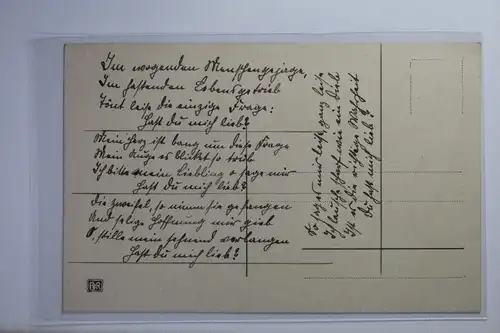 Im wogenden Menschengejage,
Im hastenden Lebensgetrieb
Tönt leise die einzige Frage:
Hast Du mich lieb?
Mein Herz ist bang um diese Frage
Mein Auge es blicket so trüb
Ich bitte mein Liebling o sage mir
Hast Du mich lieb?
Die Zweifel, so nimm sie gefangen
And selige Hoffnung mir gieb
O, stille mein sehnend verlangen
Hast Du mich lieb?
So sag es mir leise ganz leise
Ich lausche darf wie ein Dieb
Ist es die richtige Wahrheit
Du hast mich lieb?